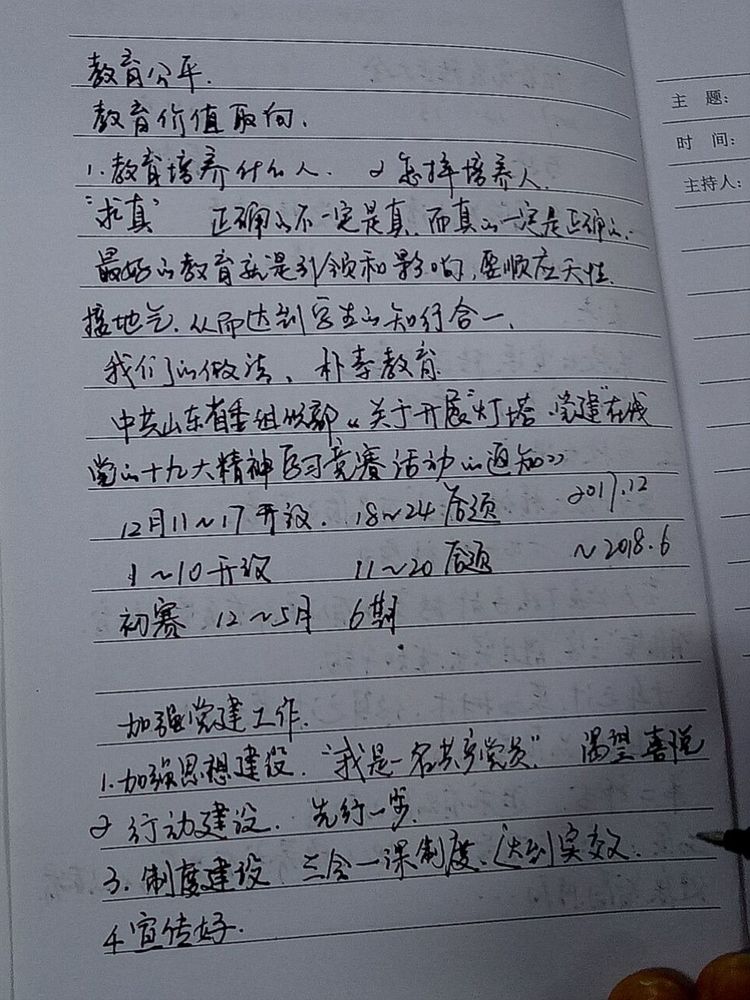 教育公平.
教育价值取向.
1.教育培养什么人. 2怎样培养人.
“求真” 正确的不一定是真,而真的一定是正确的.
最好的教育就是引领和影响,要顺应天性.
接地气.从而达到学生的知行合一.
我们的做法、朴素教育
中共山东省委组织部《关于开展“灯塔 党建”在线
党的十九大精神学习竞赛活动的通知》
12月11~17开放. 18~24答题 2017.12
1~10开放 11~20答题 ~2018.6
初赛 12~5月 6期
加强党建工作.
1.加强思想建设.“我是一名共产党员” 渴望 喜悦
2 行动建设. 先行一步.
3.制度建设 三会一课制度.达到实效.
4.宣传好.
主 题:
时 间:
主持人: